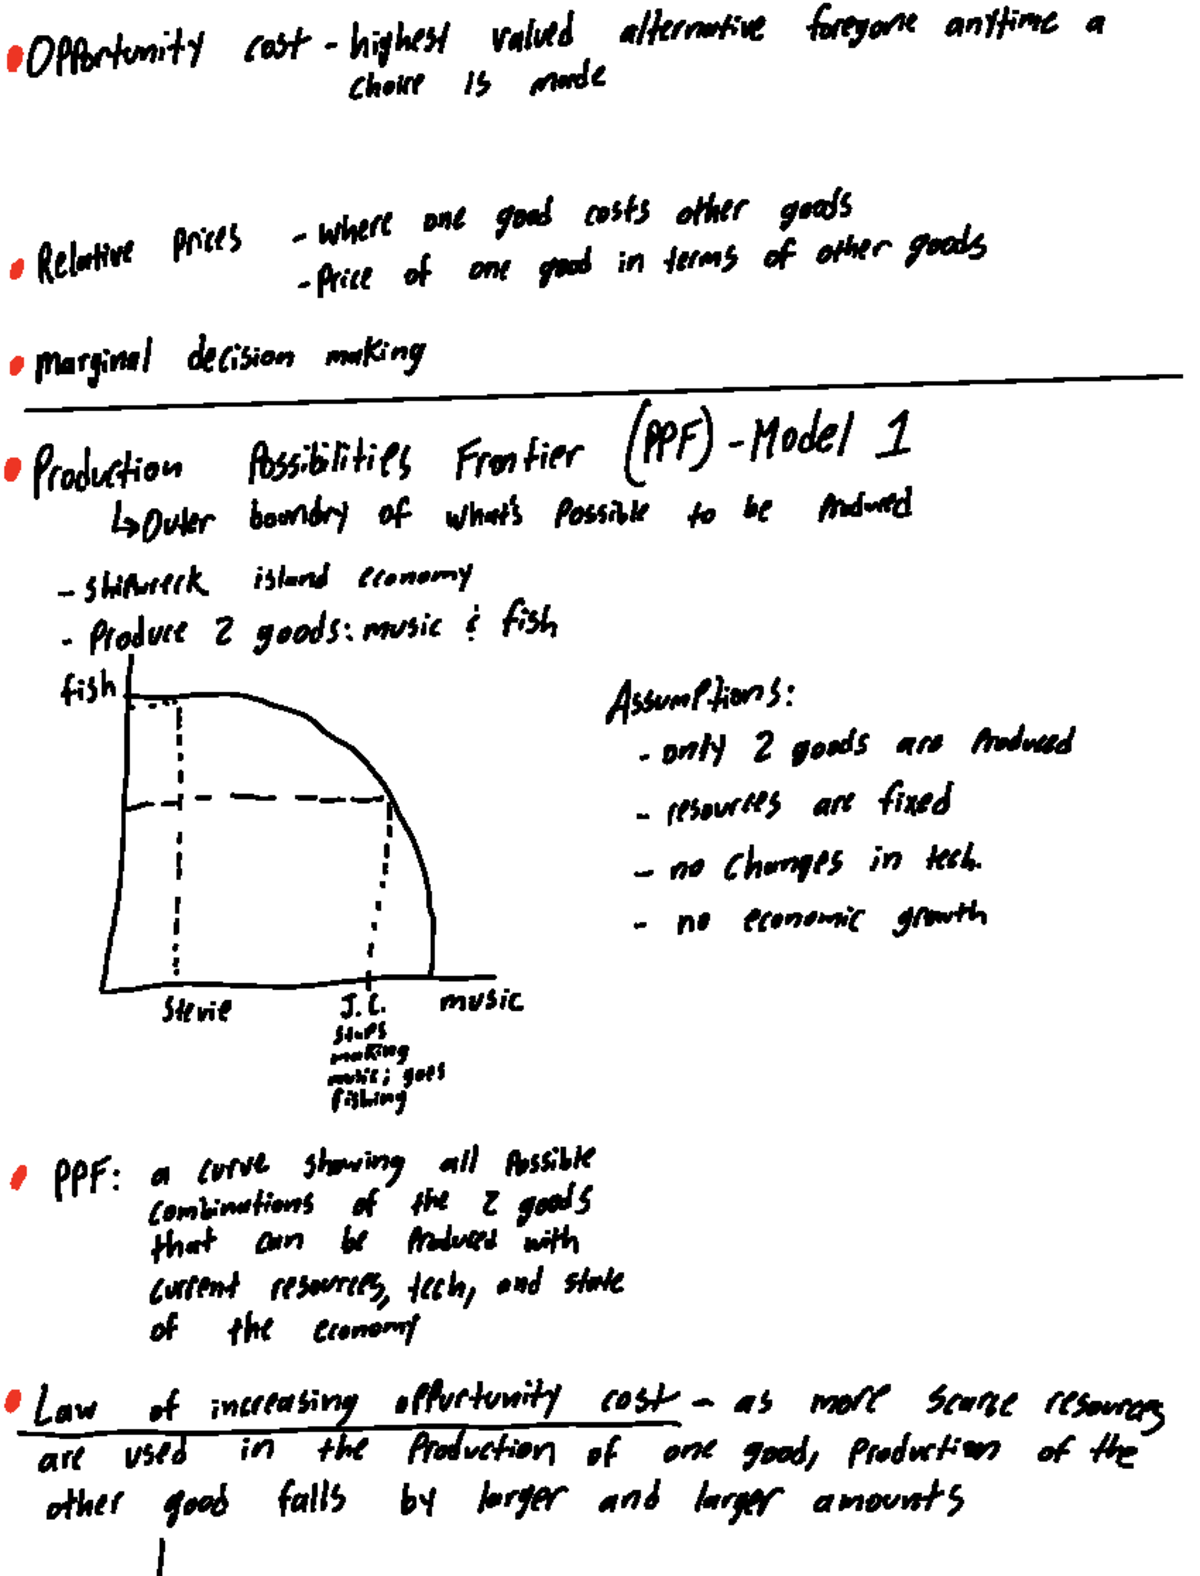 Opportunity cost - highest valued alternative foregone anytime a
choice is made
Relative Prices - where one good costs other goods
- Price of one good in terms of other goods
marginal decision making
Production Possibilities Frontier (PPF) - Model 1
↳ Outer boundry of what's Possible to be Produced
- shipwreck island economy
- Produce 2 goods: music & fish
fish
Assumptions:
- only 2 goods are Produced
- resources are fixed
- no changes in tech.
- no economic growth
Stevie J.C. music
stops
making
music; goes
fishing
PPF: a curve showing all Possible
combinations of the 2 goods
that can be Produced with
current resources, tech, and state
of the economy
Law of increasing opportunity cost - as more scarce resources
are used in the Production of one good, Production of the
other good falls by larger and larger amounts